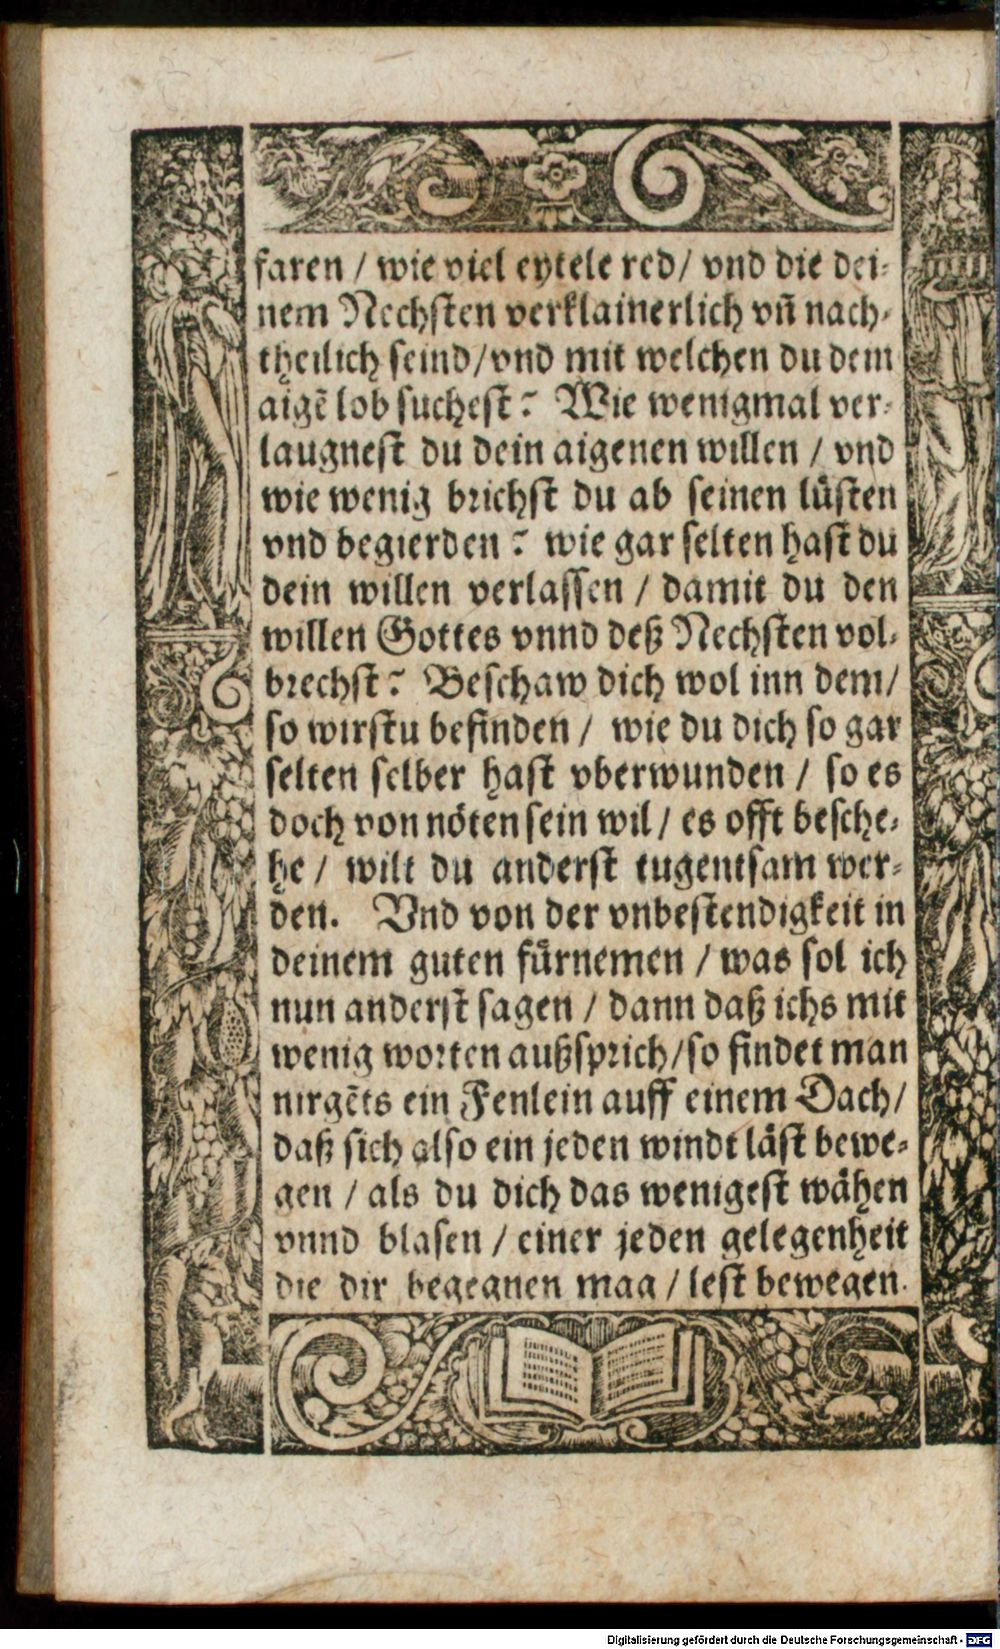 faren / wie viel eytele red / vnd die dei-
nem Nechsten verklainerlich vñ nach-
theilich seind / vnd mit welchen du dem
aigē lob suchest? Wie wenigmal ver-
laugnest du dein aigenen willen / vnd
wie wenig brichst du ab seinen lüsten
vnd begierden? wie gar selten hast du
dein willen verlassen / damit du den
willen Gottes vnnd deß Nechsten vol-
brechst? Beschaw dich wol inn dem /
so wirstu befinden / wie du dich so gar
selten selber hast vberwunden / so es
doch von nöten sein wil / es offt besche-
he / wilt du anderst tugentsam wer-
den. Vnd von der vnbestendigkeit in
deinem guten fürnemen / was sol ich
nun anderst sagen / dann daß ichs mit
wenig worten außsprich / so findet man
nirgēts ein Fenlein auff einem Dach /
daß sich also ein jeden windt läst bewe-
gen / als du dich das wenigest wähen
vnnd blasen / einer jeden gelegenheit
die dir begegnen mag / lest bewegen.
Digitalisierung gefördert durch die Deutsche Forschungsgemeinschaft - DFG